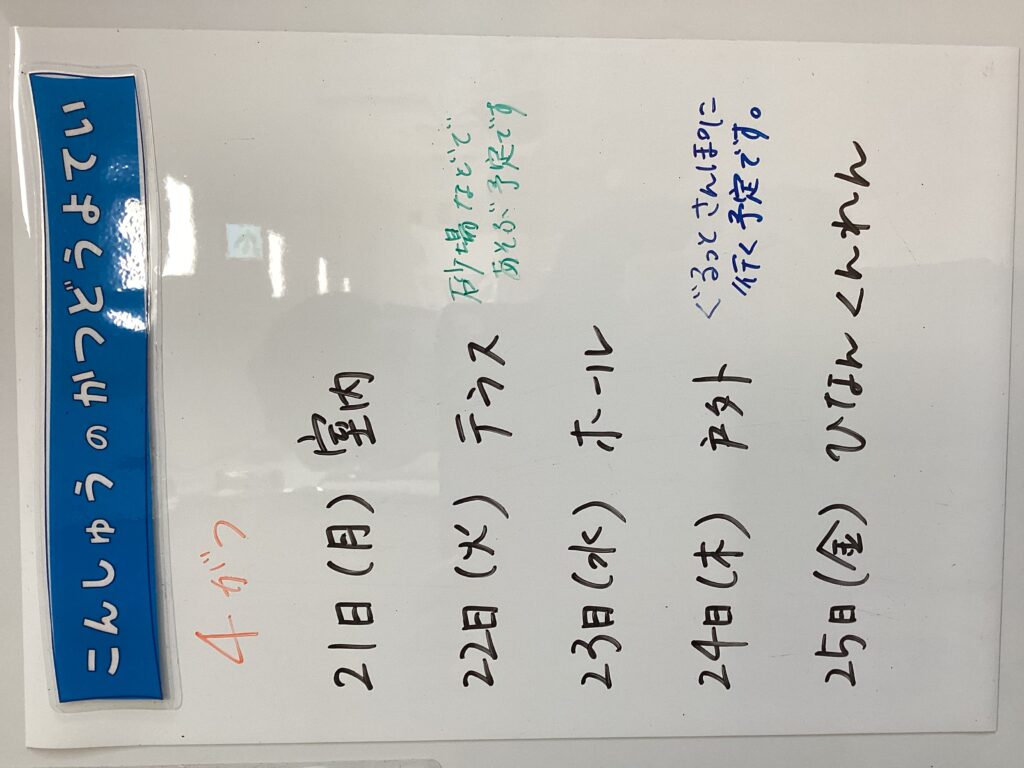 こんしゅうのかつどうよてい
4がつ
21日(月) 室内
22日(火) テラス 砂場などで
あそぶ予定です
23日(水) ホール
24日(木) 戸外 ぐるっとさんぽりに
行く予定です。
25日(金) ひなんくんれん